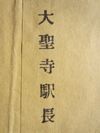 大聖寺駅長